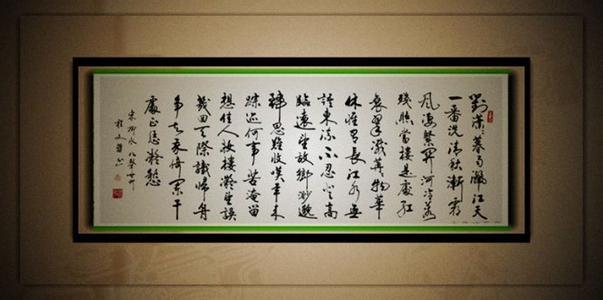 對瀟瀟暮雨灑江天
一番洗清秋漸霜
風淒緊關河冷落
殘照當樓是處紅
衰翠減苒苒物華
休惟有長江水無
語東流不忍登高
臨遠望故鄉渺邈
歸思難收嘆年來
踪迹何事苦淹留
想佳人妝樓顒望誤
幾回天際識歸舟
爭知我倚闌干
處正恁凝愁
宋柳永八聲甘州